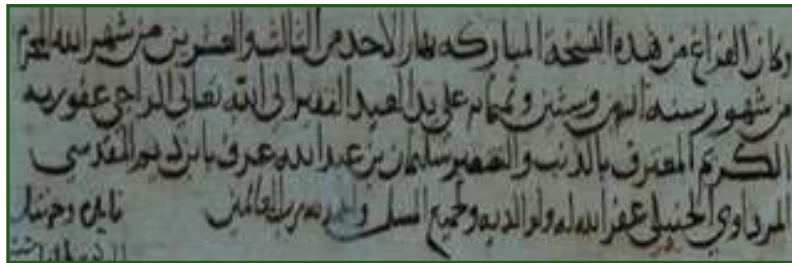 وكان الفراغ من هذه النسخة المباركه نهار الاحد من الثالث والعشرين من شهر الله المحرم
من شهور سنه اثنين وستين وثمانمايه على يد العبد الفقير الى الله تعالى الراجي عفو ربه
الكريم المعترف بالذنب والتقصير سليمان بن عبد الله عرف بابن القدسي
المرداوي الحنبلي غفر الله له ولوالديه ولجميع المسلمين والحمد لله رب العالمين